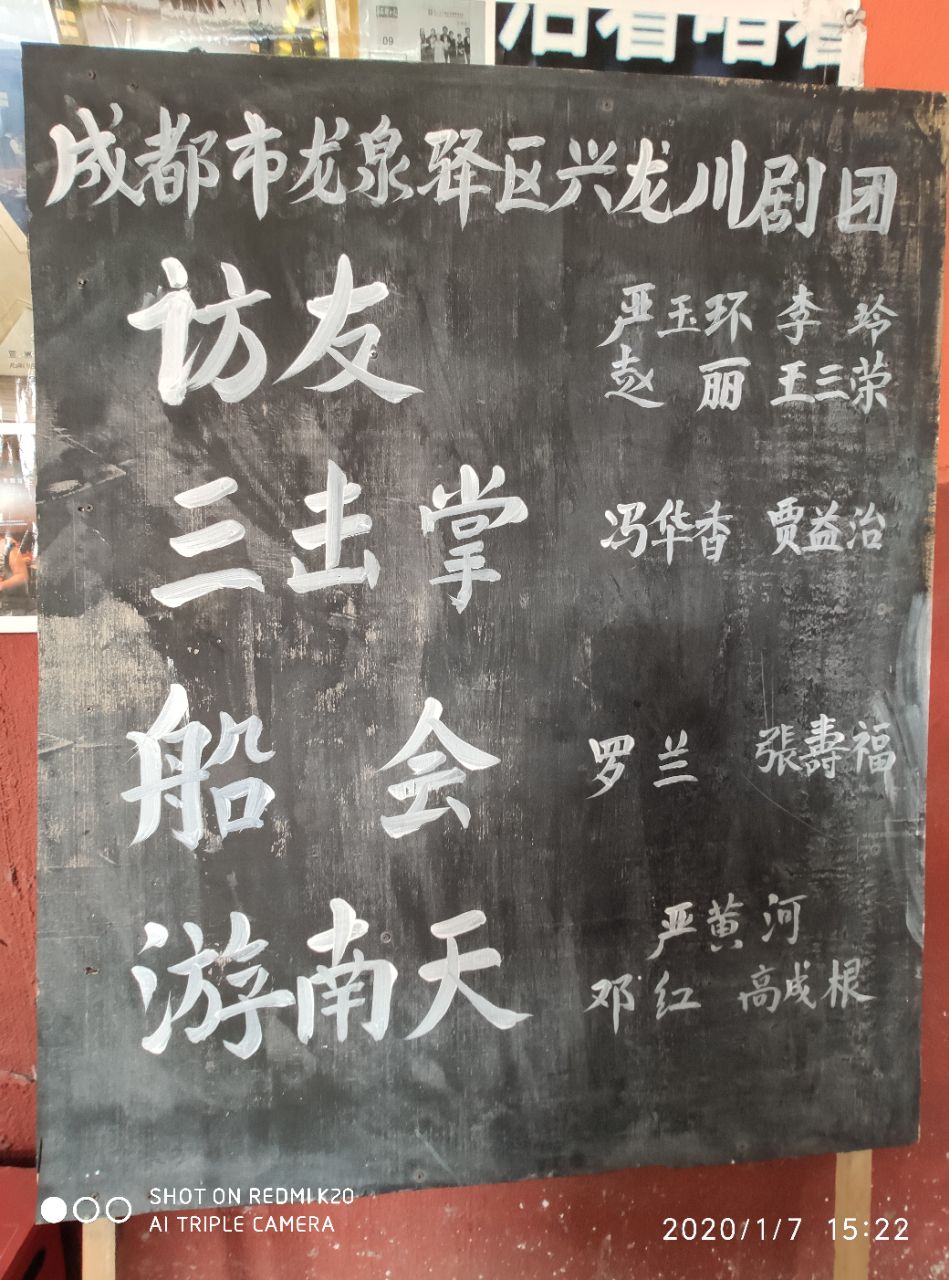 09
成都市龙泉驿区兴龙川剧团
访友 严玉环 李玲
赵丽 王三荣
三击掌 冯华香 贾益治
船会 罗兰 張壽福
游南天 严黄河
邓红 高成根
SHOT ON REDMI K20
AI TRIPLE CAMERA
2020/1/7 15:22